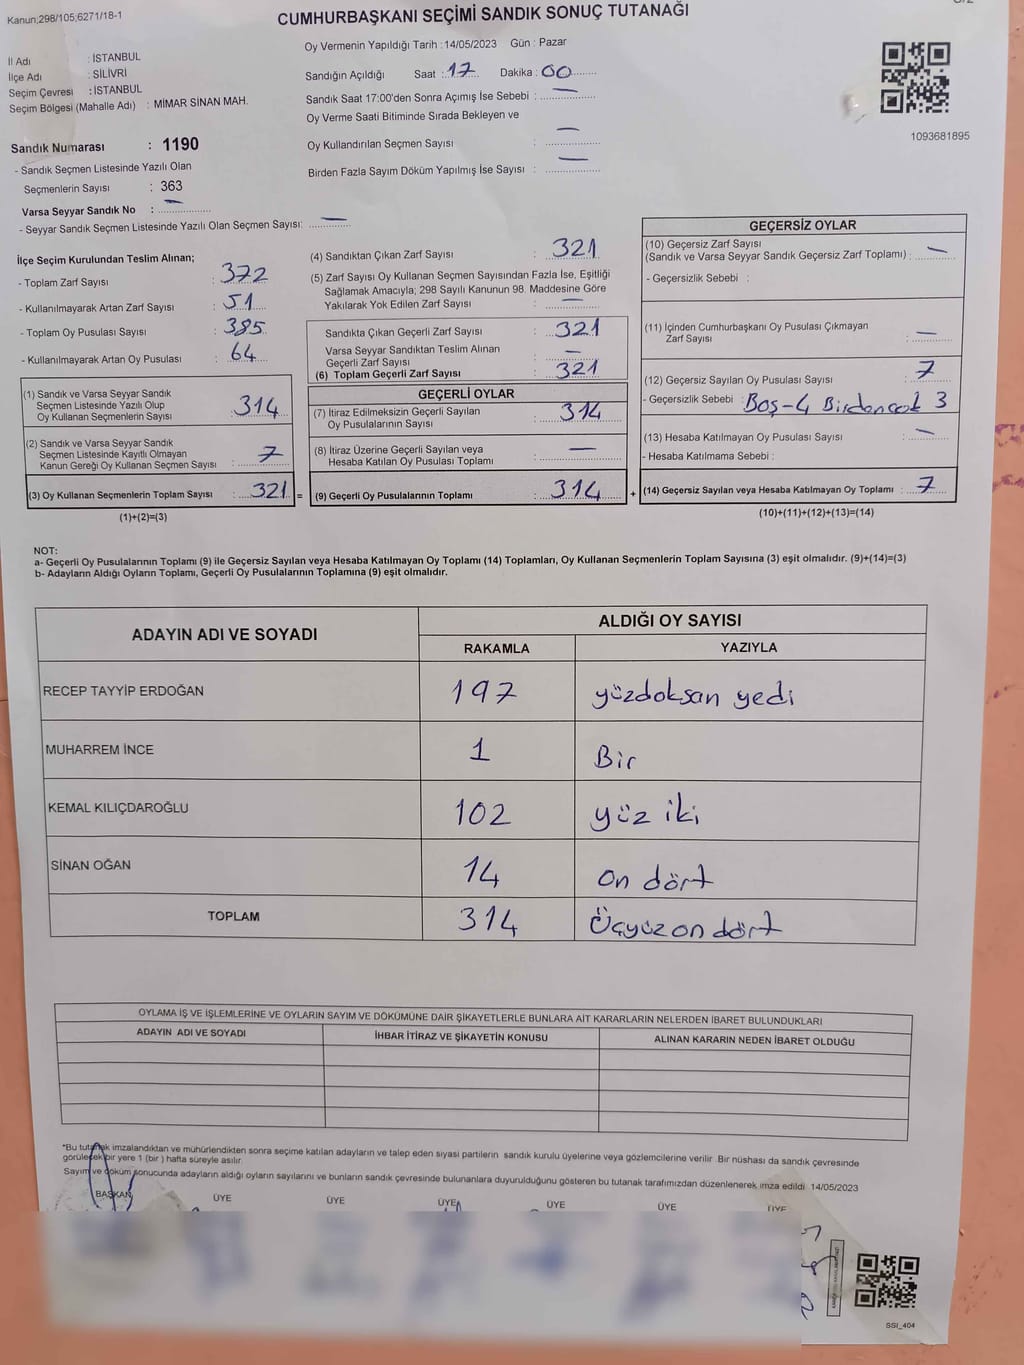 Kanun;298/105;6271/18-1
CUMHURBAŞKANI SEÇİMİ SANDIK SONUÇ TUTANAĞI
İl Adı : İSTANBUL
İlçe Adı : SİLİVRİ
Seçim Çevresi : İSTANBUL
Seçim Bölgesi (Mahalle Adı) : MİMAR SİNAN MAH.
Oy Vermenin Yapıldığı Tarih : 14/05/2023 Gün : Pazar
Sandığın Açıldığı Saat : 17 Dakika : 00
Sandık Saat 17:00'den Sonra Açımış İse Sebebi : —
Oy Verme Saati Bitiminde Sırada Bekleyen ve
Oy Kullandırılan Seçmen Sayısı : —
Birden Fazla Sayım Döküm Yapılmış İse Sayısı : —
1093681895
Sandık Numarası : 1190
- Sandık Seçmen Listesinde Yazılı Olan
Seçmenlerin Sayısı : 363
Varsa Seyyar Sandık No : —
- Seyyar Sandık Seçmen Listesinde Yazılı Olan Seçmen Sayısı: —
İlçe Seçim Kurulundan Teslim Alınan;
- Toplam Zarf Sayısı : 372
- Kullanılmayarak Artan Zarf Sayısı : 51
- Toplam Oy Pusulası Sayısı : 385
- Kullanılmayarak Artan Oy Pusulası : 64
(1) Sandık ve Varsa Seyyar Sandık
Seçmen Listesinde Yazılı Olup
Oy Kullanan Seçmenlerin Sayısı : 314
(2) Sandık ve Varsa Seyyar Sandık
Seçmen Listesinde Kayıtlı Olmayan
Kanun Gereği Oy Kullanan Seçmen Sayısı : 7
(3) Oy Kullanan Seçmenlerin Toplam Sayısı : 321 =
(1)+(2)=(3)
(4) Sandıktan Çıkan Zarf Sayısı : 321
(5) Zarf Sayısı Oy Kullanan Seçmen Sayısından Fazla İse, Eşitliği
Sağlamak Amacıyla; 298 Sayılı Kanunun 98. Maddesine Göre
Yakılarak Yok Edilen Zarf Sayısı : —
Sandıkta Çıkan Geçerli Zarf Sayısı : 321
Varsa Seyyar Sandıktan Teslim Alınan
Geçerli Zarf Sayısı : —
(6) Toplam Geçerli Zarf Sayısı : 321
GEÇERLİ OYLAR
(7) İtiraz Edilmeksizin Geçerli Sayılan
Oy Pusulalarının Sayısı : 314
(8) İtiraz Üzerine Geçerli Sayılan veya
Hesaba Katılan Oy Pusulası Toplamı : —
(9) Geçerli Oy Pusulalarının Toplamı : 314 +
GEÇERSİZ OYLAR
(10) Geçersiz Zarf Sayısı
(Sandık ve Varsa Seyyar Sandık Geçersiz Zarf Toplamı) : —
- Geçersizlik Sebebi :
(11) İçinden Cumhurbaşkanı Oy Pusulası Çıkmayan
Zarf Sayısı : —
(12) Geçersiz Sayılan Oy Pusulası Sayısı : 7
- Geçersizlik Sebebi : Boş-4 Birdençok 3
(13) Hesaba Katılmayan Oy Pusulası Sayısı : —
- Hesaba Katılmama Sebebi :
(14) Geçersiz Sayılan veya Hesaba Katılmayan Oy Toplamı : 7
(10)+(11)+(12)+(13)=(14)
NOT:
a- Geçerli Oy Pusulalarının Toplamı (9) ile Geçersiz Sayılan veya Hesaba Katılmayan Oy Toplamı (14) Toplamları, Oy Kullanan Seçmenlerin Toplam Sayısına (3) eşit olmalıdır. (9)+(14)=(3)
b- Adayların Aldığı Oyların Toplamı, Geçerli Oy Pusulalarının Toplamına (9) eşit olmalıdır.
ADAYIN ADI VE SOYADI ALDIĞI OY SAYISI
RAKAMLA YAZIYLA
RECEP TAYYİP ERDOĞAN 197 yüzdoksan yedi
MUHARREM İNCE 1 Bir
KEMAL KILIÇDAROĞLU 102 yüz iki
SİNAN OĞAN 14 on dört
TOPLAM 314 Üçyüz on dört
OYLAMA İŞ VE İŞLEMLERİNE VE OYLARIN SAYIM VE DÖKÜMÜNE DAİR ŞİKAYETLERLE BUNLARA AİT KARARLARIN NELERDEN İBARET BULUNDUKLARI
ADAYIN ADI VE SOYADI İHBAR İTİRAZ VE ŞİKAYETİN KONUSU ALINAN KARARIN NEDEN İBARET OLDUĞU
*Bu tutanak imzalandıktan ve mühürlendikten sonra seçime katılan adayların ve talep eden siyasi partilerin sandık kurulu üyelerine veya gözlemcilerine verilir. Bir nüshası da sandık çevresinde
görülecek bir yere 1 (bir) hafta süreyle asılır.
Sayım ve döküm sonucunda adayların aldığı oyların sayılarını ve bunların sandık çevresinde bulunanlara duyurulduğunu gösteren bu tutanak tarafımızdan düzenlenerek imza edildi. 14/05/2023
BAŞKAN ÜYE ÜYE ÜYE ÜYE ÜYE ÜYE
SSI_404